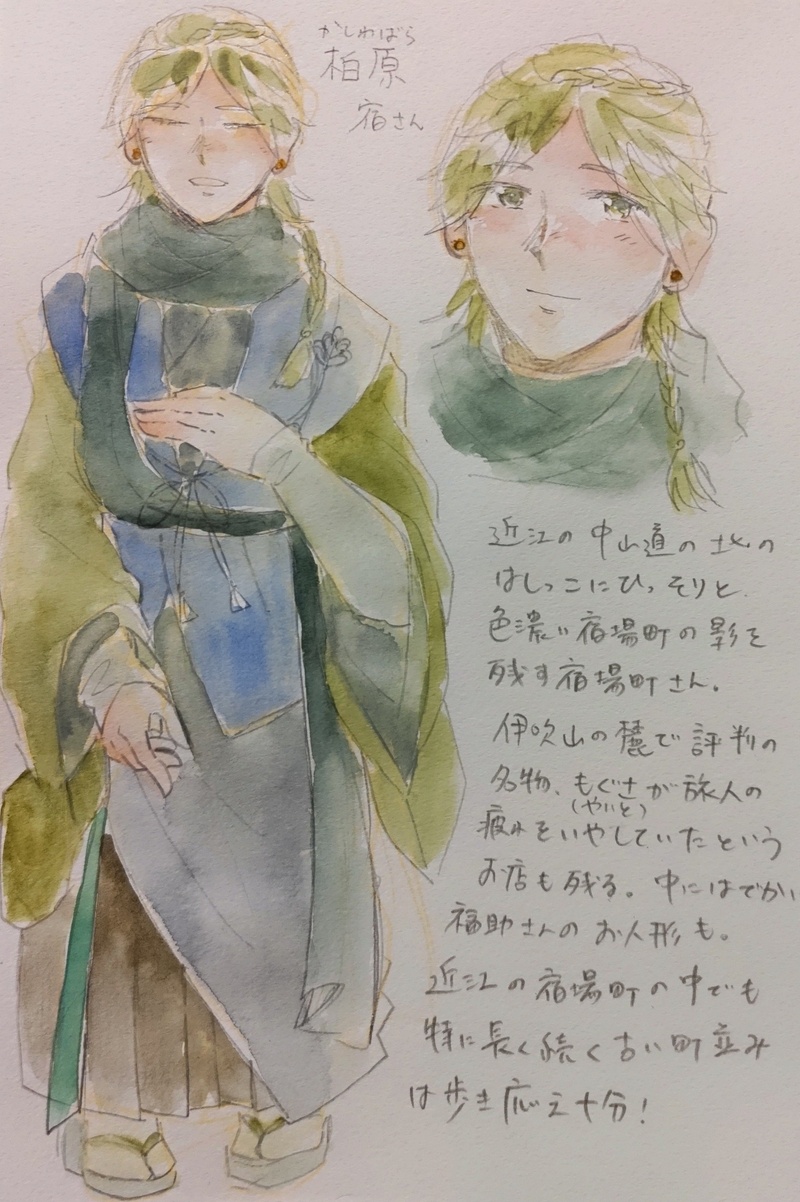 かしわばら
柏原
宿さん
近江の中山道の北の
はしっこにひっそりと
色濃い宿場町の影を
残す宿場町さん。
伊吹山の麓で評判の
名物、もぐさが旅人の
(やいと)
疲れをいやしていたという
お店も残る。中にはでかい
福助さんのお人形も。
近江の宿場町の中でも
特に長く続く古い町並み
は歩き応え十分!